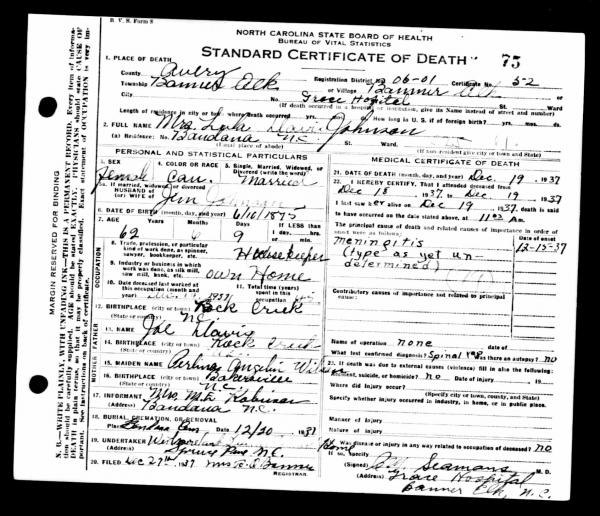 B. V. S. Form 8
NORTH CAROLINA STATE BOARD OF HEALTH
BUREAU OF VITAL STATISTICS
STANDARD CERTIFICATE OF DEATH 75
1. PLACE OF DEATH
County Avery Registration District 06-01 Certificate No. 52
Township Banner Elk or Village Banner Elk
City No. Grace Hospital St. Ward
(If death occurred in a hospital or institution, give its NAME instead of street and number)
Length of residence in city or town where death occurred yrs. mos. ds. How long in U. S. if of foreign birth? yrs. mos. ds.
2. FULL NAME Mrs. Davis Johnson
(a) Residence: No. Bandana N.C. St. Ward
(Usual place of abode) (If non-resident give city or town and State)
PERSONAL AND STATISTICAL PARTICULARS
3. SEX Female 4. COLOR OR RACE Cau. 5. Single, Married, Widowed, or Divorced (write the word) Married
5a. If married, widowed, or divorced HUSBAND of (or) WIFE of Jim Johnson
6. DATE OF BIRTH (month, day, and year) 6/10/1875
7. AGE 62 9 IF LESS than 1 day, hrs. or min.
OCCUPATION
8. Trade, profession, or particular kind of work done, as spinner, sawyer, bookkeeper, etc. Housekeeper
9. Industry or business in which work was done, as silk mill, saw mill, bank, etc. own Home
10. Date deceased last worked at this occupation (month and year) 1937 11. Total time (years) spent in this occupation
12. BIRTHPLACE (city or town) Rock Creek
(State or country) N.C.
FATHER
13. NAME Joe Davis
14. BIRTHPLACE (city or town) Rock Creek
(State or country)
MOTHER
15. MAIDEN NAME Angelin Wilson
16. BIRTHPLACE (city or town) Bakersville
(State or country) N.C.
17. INFORMANT Mrs. M. E. Robinson
(Address) Bandana N.C.
18. BURIAL, CREMATION, OR REMOVAL
Place Bandana Cem Date 12/20 1937
19. UNDERTAKER
(Address) Spruce Pine N.C.
20. FILED Dec 29th 1937
REGISTRAR.
MEDICAL CERTIFICATE OF DEATH
21. DATE OF DEATH (month, day, and year) Dec. 19, 1937
22. I HEREBY CERTIFY, That I attended deceased from
Dec 18, 1937, to Dec 19, 1937
I last saw her alive on Dec 19, 1937, death is said
to have occurred on the date stated above, at 11:00 A m.
The principal cause of death and related causes of importance in order of onset were as follows: Date of onset
meningitis 12-15-37
(type as yet un-
determined)
Contributory causes of importance not related to principal cause:
Name of operation none Date of
What test confirmed diagnosis? Spinal Was there an autopsy? No
23. If death was due to external causes (violence) fill in also the following:
Accident, suicide, or homicide? no Date of injury 19
Where did injury occur?
(Specify city or town, county, and State)
Specify whether injury occurred in industry, in home, or in public place.
Manner of injury
Nature of injury
24. Was disease or injury in any way related to occupation of deceased? no
If so, specify
(Signed) Seamans M. D.
(Address) Grace Hospital
Banner Elk, N.C.
MARGIN RESERVED FOR BINDING
N. B.—WRITE PLAINLY, WITH UNFADING INK—THIS IS A PERMANENT RECORD. Every item of information should be carefully supplied. AGE should be stated EXACTLY. PHYSICIANS should state CAUSE OF DEATH in plain terms, so that it may be properly classified. Exact statement of OCCUPATION is very important. See instructions on back of certificate.